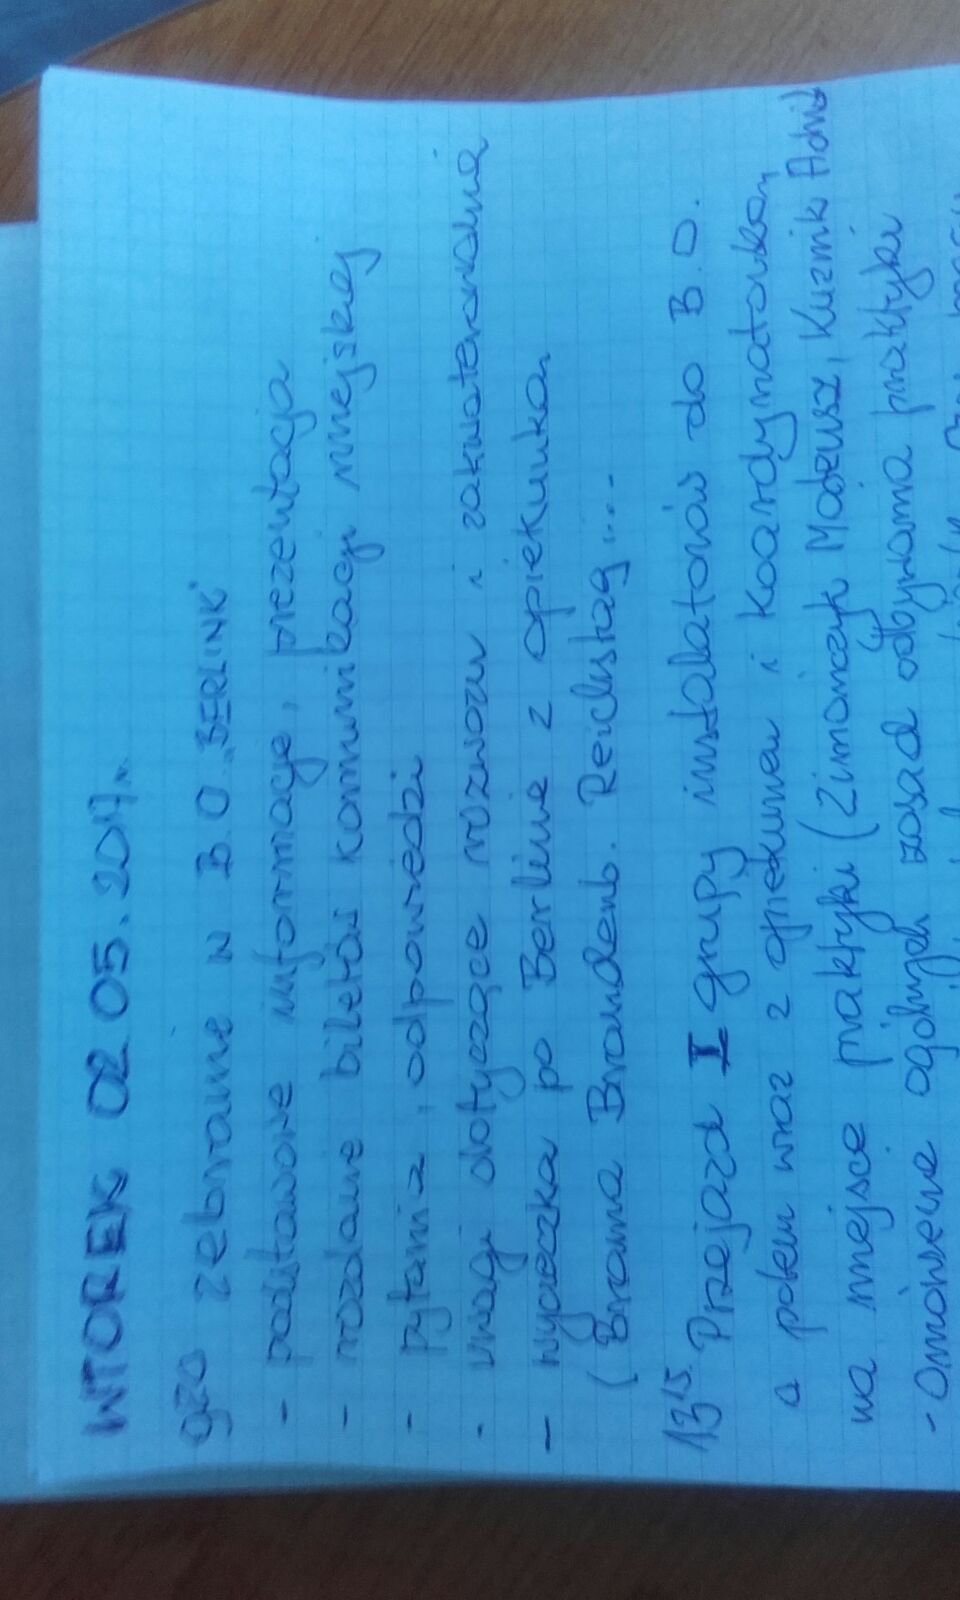 WTOREK 02.05.2017r.
9:20 zebranie w B.O. „BERLINK”
- podstawowe informacje, prezentacja
- rozdanie biletów komunikacji miejskiej
- pytania, odpowiedzi
- uwagi dotyczące rozwozu i zakwaterowania
- wycieczka po Berlinie z opiekunką
(Brama Brandenb. Reichstag...
13:15 Przejazd I grupy instalatorów do B.O.
a potem wraz z opiekunem i koordynatorką
na miejsce praktyki (Zimończyk Mateusz, Kuźnik
- Omówienie ogólnych zasad odbywania praktyki